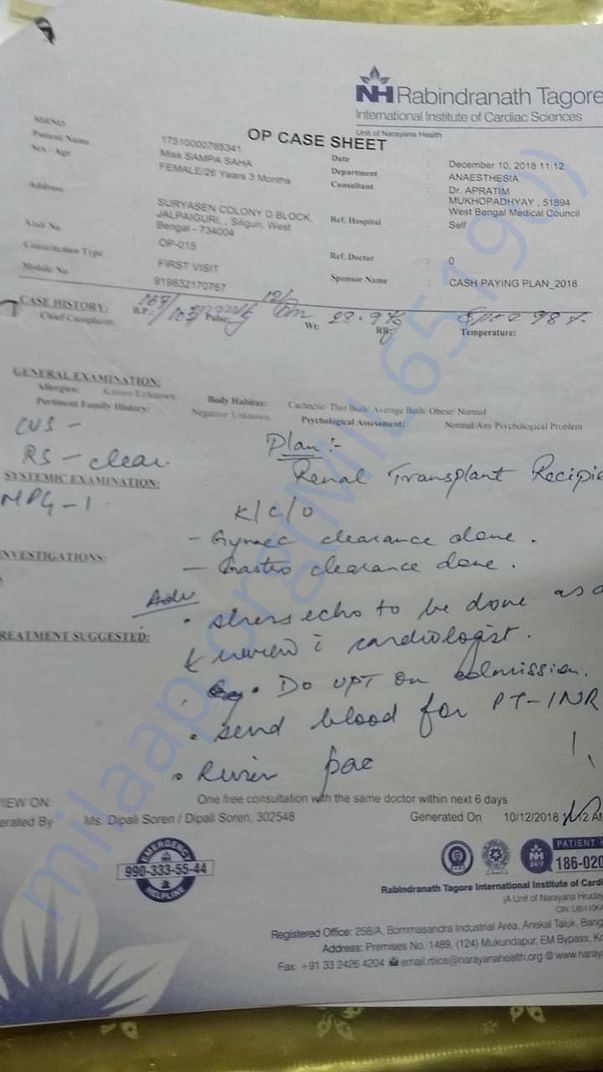 NH Rabindranath Tagore
International Institute of Cardiac Sciences
Unit of Narayana Health
OP CASE SHEET
MRNO 17510000765341
Patient Name Miss SAMPA SAHA
Sex / Age FEMALE/26 Years 3 Months
Address SURYASEN COLONY D BLOCK,
JALPAIGURI, , Siliguri, West
Bengal - 734004
Visit No OP-015
Consultation Type FIRST VISIT
Mobile No 919832170767
Date : December 10, 2018 11:12
Department : ANAESTHESIA
Consultant : Dr. APRATIM
MUKHOPADHYAY , 51894
West Bengal Medical Council
Ref. Hospital : Self
Ref. Doctor : 0
Sponsor Name : CASH PAYING PLAN_2018
CASE HISTORY:
Chief Complaint: B.P.: Pulse: Wt: RR: Temperature:
GENERAL EXAMINATION:
Allergies: Known/Unknown Body Habitus: Cachectic/ Thin Built/ Average Built/ Obese/ Normal
Pertinent Family History: Negative/ Unknown Psychological Assessment: Normal/Any Psychological Problem
CVS -
RS - clear
SYSTEMIC EXAMINATION:
MPG - 1
Plan :-
Renal Transplant Recipie
K/C/O
- Gynaec clearance done.
- Gastro clearance done.
INVESTIGATIONS:
Adv
• stress echo to be done
TREATMENT SUGGESTED:
& review c cardiologist.
• Do UPT on admission.
• send blood for PT-INR
• Review pac
VIEW ON: One free consultation with the same doctor within next 6 days
erated By Ms. Dipali Soren / Dipali Soren, 302548 Generated On 10/12/2018
EMERGENCY
990-333-55-44
HELPLINE
NH
PATIENT
186-020
Rabindranath Tagore International Institute of Cardi
(A Unit of Narayana Hruday
Registered Office: 258/A, Bommasandra Industrial Area, Anekal Taluk, Bang
Address: Premises No. 1489, (124) Mukundapur, EM Bypass, Ko
Fax: +91 33 2426 4204 email.rtiics@narayanahealth.org www.naray